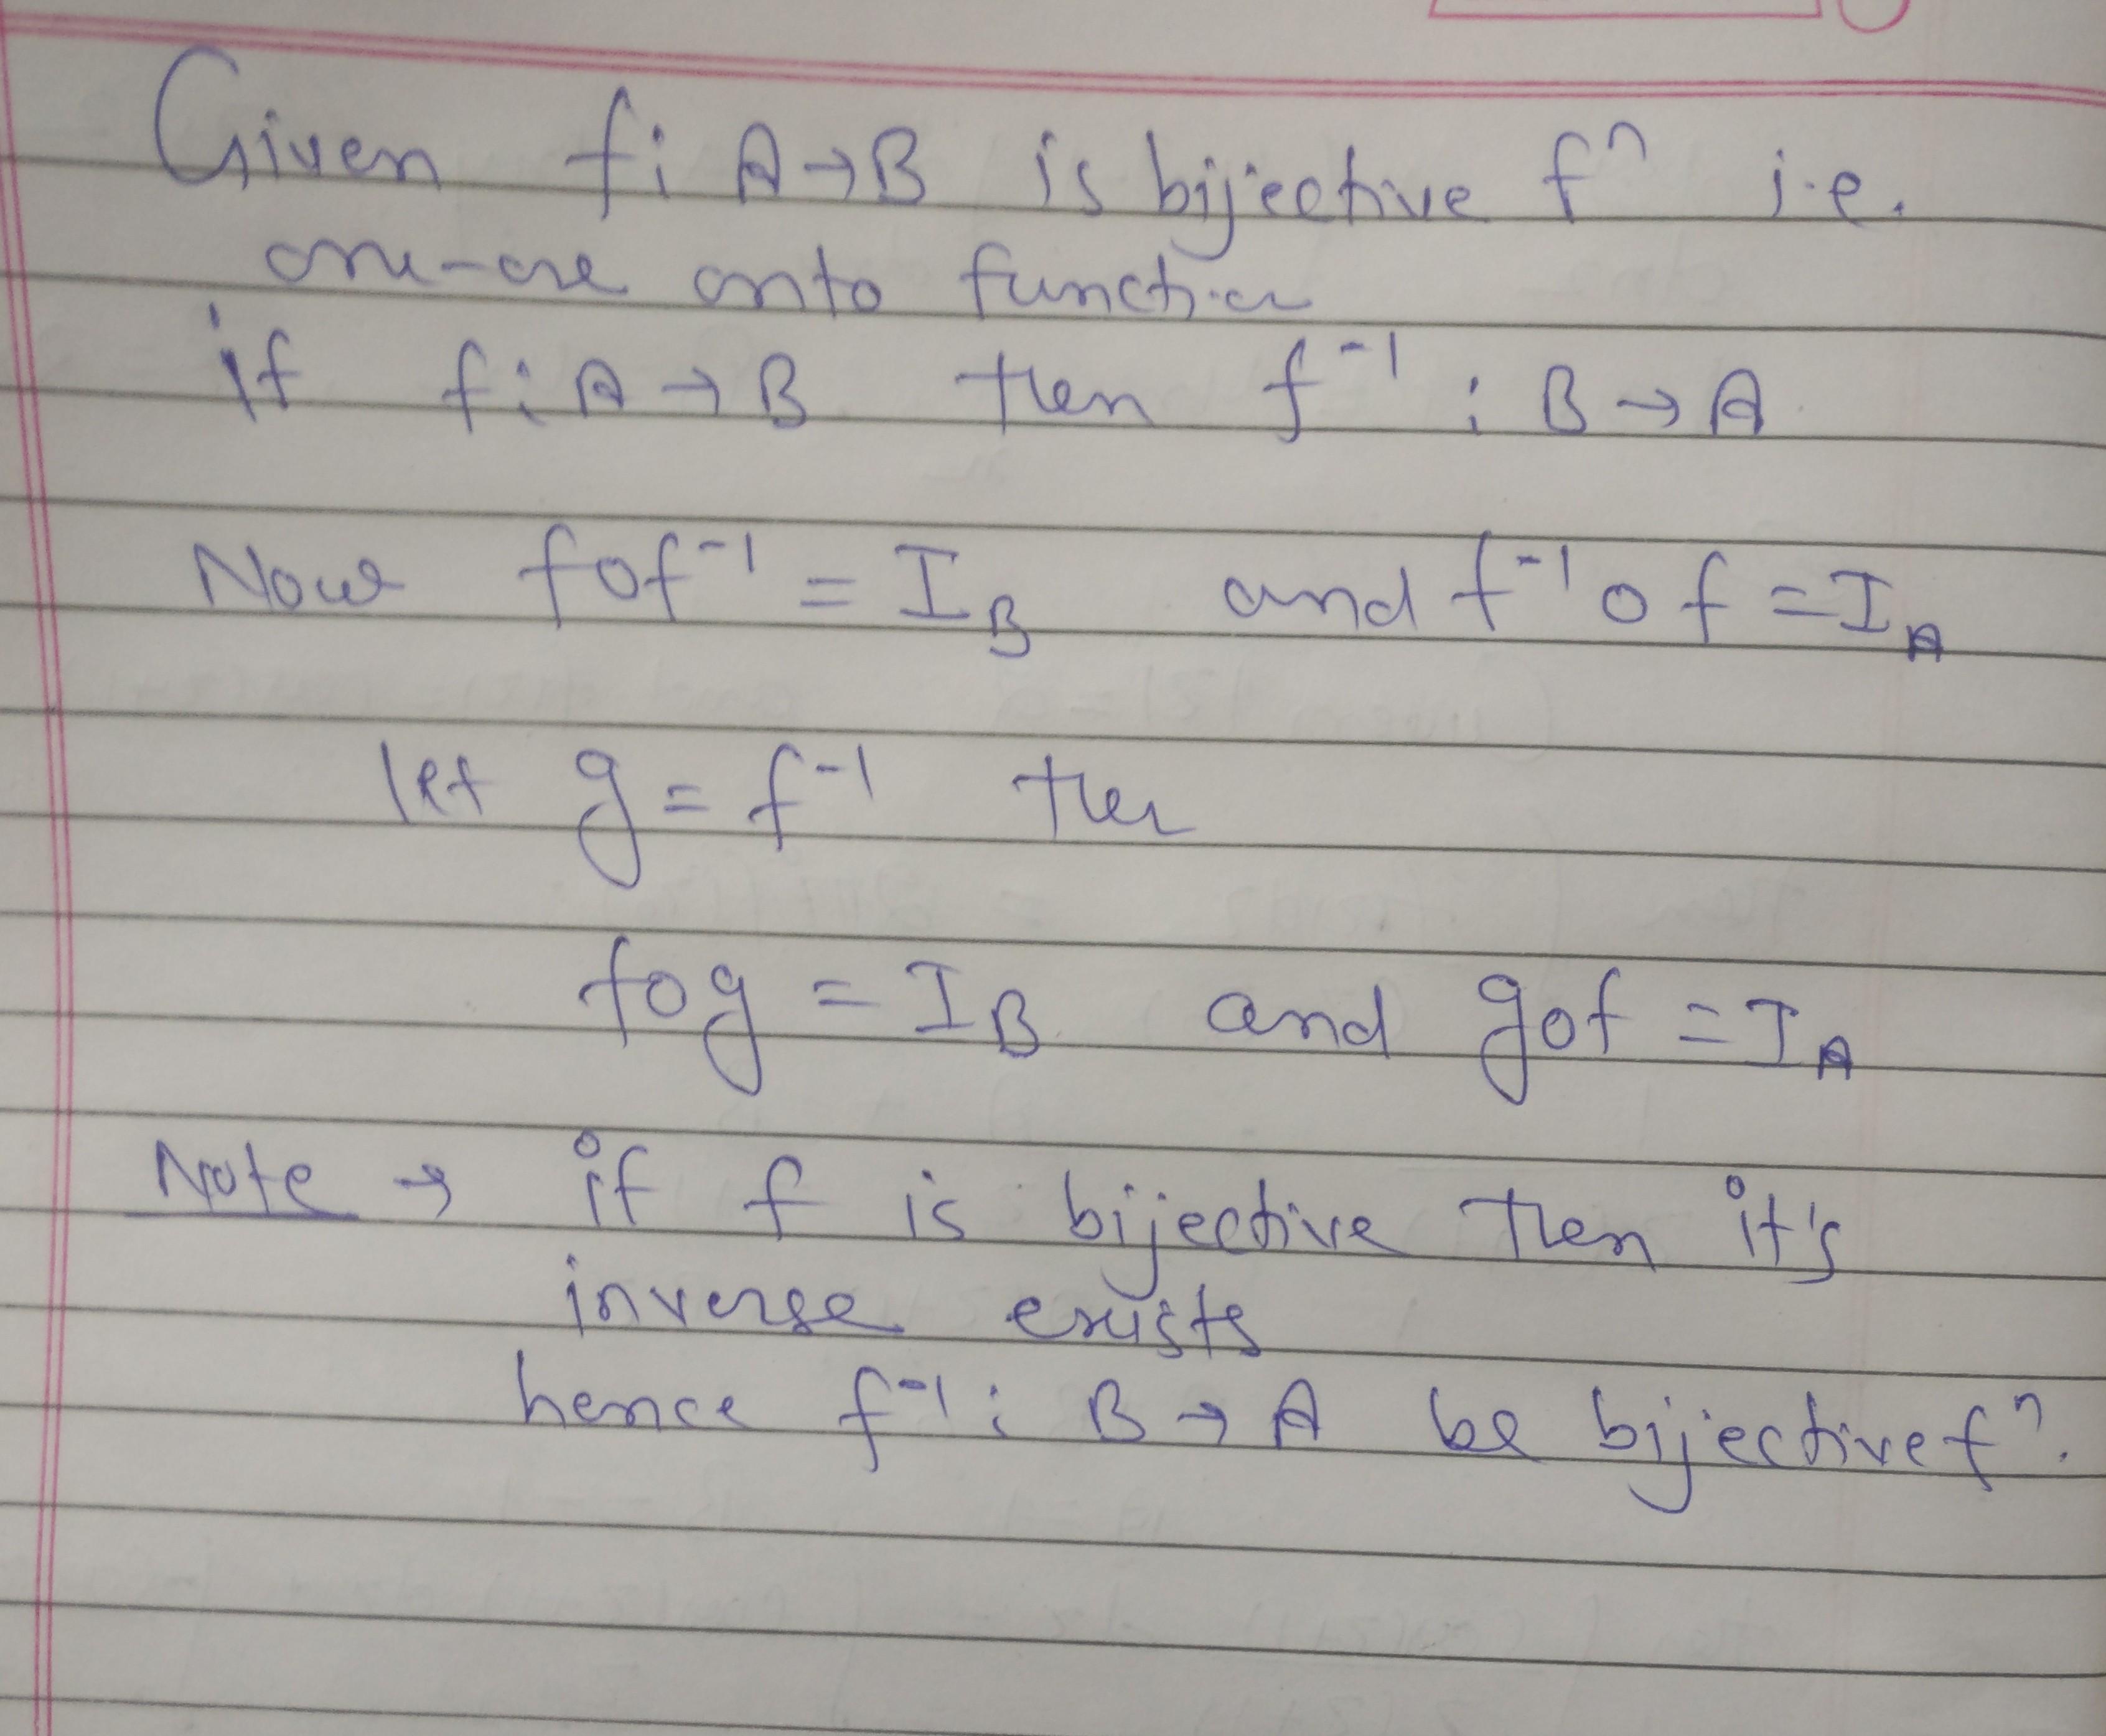 Given f: A→B is bijective fⁿ i.e.
one-one onto function
if f: A→B then f⁻¹ : B→A
Now fof⁻¹ = I_B and f⁻¹of = I_A
let g = f⁻¹ then
fog = I_B and gof = I_A
Note → if f is bijective then it's
inverse exists
hence f⁻¹: B→A be bijective fⁿ.